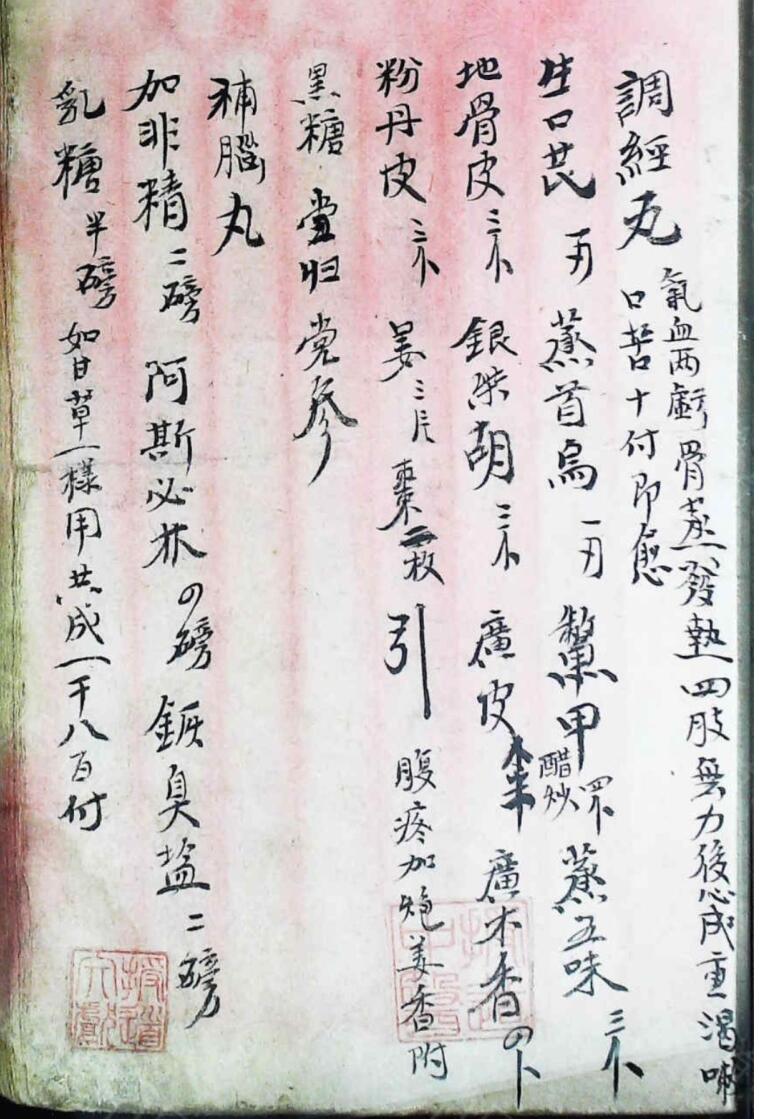 調經丸
氣血兩虧骨蒸發熱四肢無力後心成重渴嗽
口苦十付即愈
生口芪 蒸首烏 鱉甲 醋炒 蒸五味 三
地骨皮 三 銀柴胡 三 廣皮 廣木香
粉丹皮 三 姜三片 棗 枚 引 腹疼加炮姜香附
黑糖 當归 党參
補腦丸
加非精二磅 阿斯必林の磅 臭盐二磅
乳糖半磅 如甘草一樣用共成一千八百付